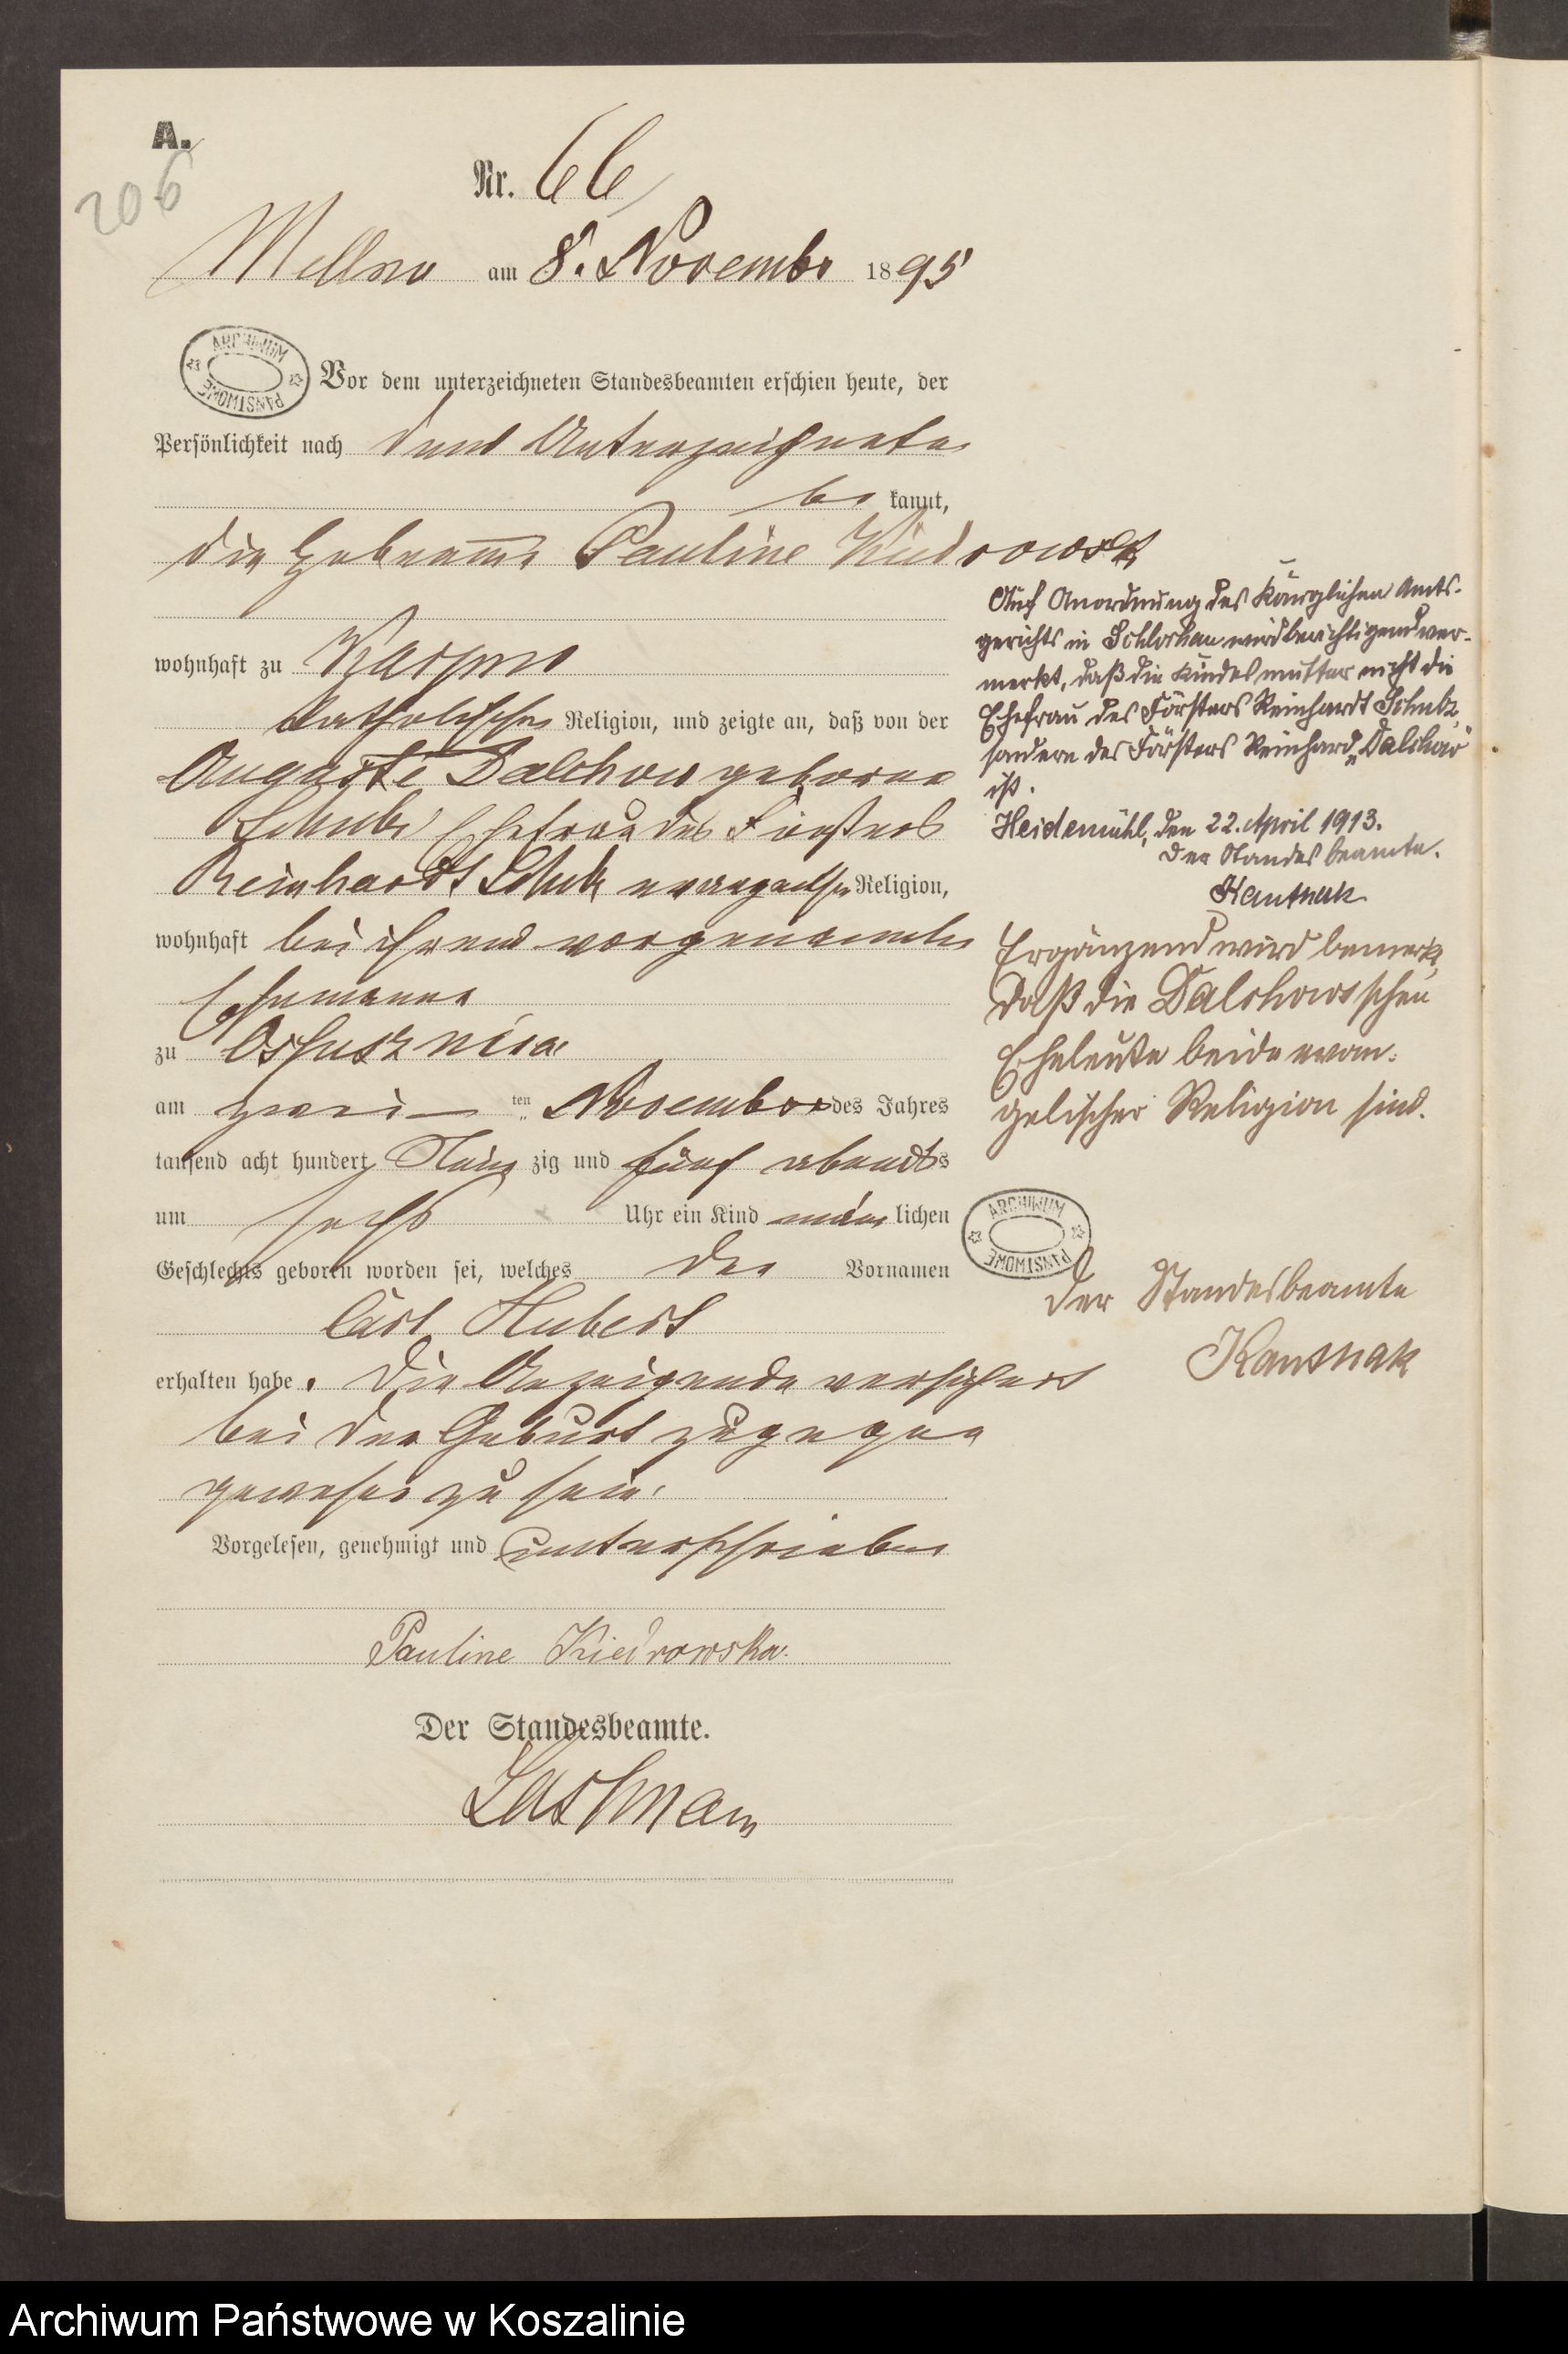 A.
206
Nr. 66
Mellno am 8. November 1895
ARCHIWUM PAŃSTWOWE
Vor dem unterzeichneten Standesbeamten erschien heute, der
Persönlichkeit nach dem Unterzeichneten
be kannt,
die Hebeamme Pauline Kiedrowska
wohnhaft zu Karpno
katholischer Religion, und zeigte an, daß von der
Auguste Dalchow geborne
Schulz Ehefrau des Försters
Reinhardt Schulz evangelischer Religion,
wohnhaft bei ihrem vorgenannten
Ehemanne
zu
am zwei ten November des Jahres
tausend acht hundert Neun zig und fünf abends
um sechs Uhr ein Kind män lichen
Geschlechts geboren worden sei, welches den Vornamen
Carl Hubert
erhalten habe. Die Anzeigende versichert
bei der Geburt zugegen
gewesen zu sein.
Vorgelesen, genehmigt und unterschrieben
Pauline Kiedrowska.
Der Standesbeamte.
Auf Anordnung des Königlichen Amts-
gerichts in Schlochau wird berichtigend ver-
merkt, daß die Kindesmutter nicht die
Ehefrau des Försters Reinhardt Schulz,
sondern des Försters Reinhard "Dalchow"
ist.
Heidemühl, den 22. April 1913.
Der Standesbeamte.
Kantnak
Ergänzend wird bemerkt,
daß die Dalchowschen
Eheleute beide evan-
gelischer Religion sind.
ARCHIWUM PAŃSTWOWE
Der Standesbeamte
Kantnak
Archiwum Państwowe w Koszalinie